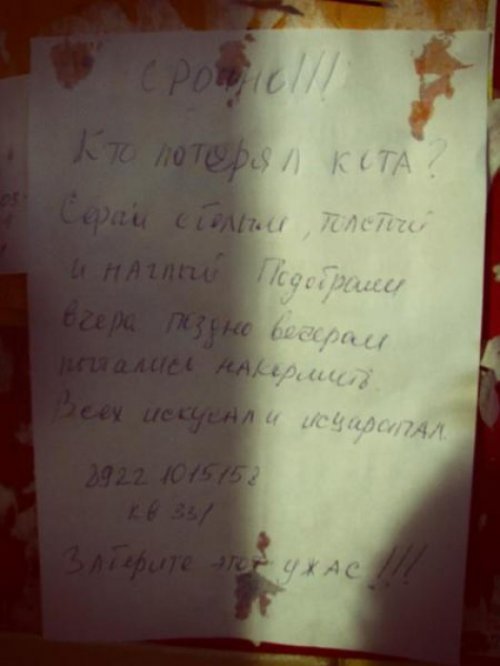 СРОЧНО!!!
Кто потерял кота?
Серый с белым, толстый
и наглый Подобрали
вчера поздно вечером
пытались накормить.
Всех искусал и исцарапал.
89221015152
кв 331
Заберите этот ужас!!!